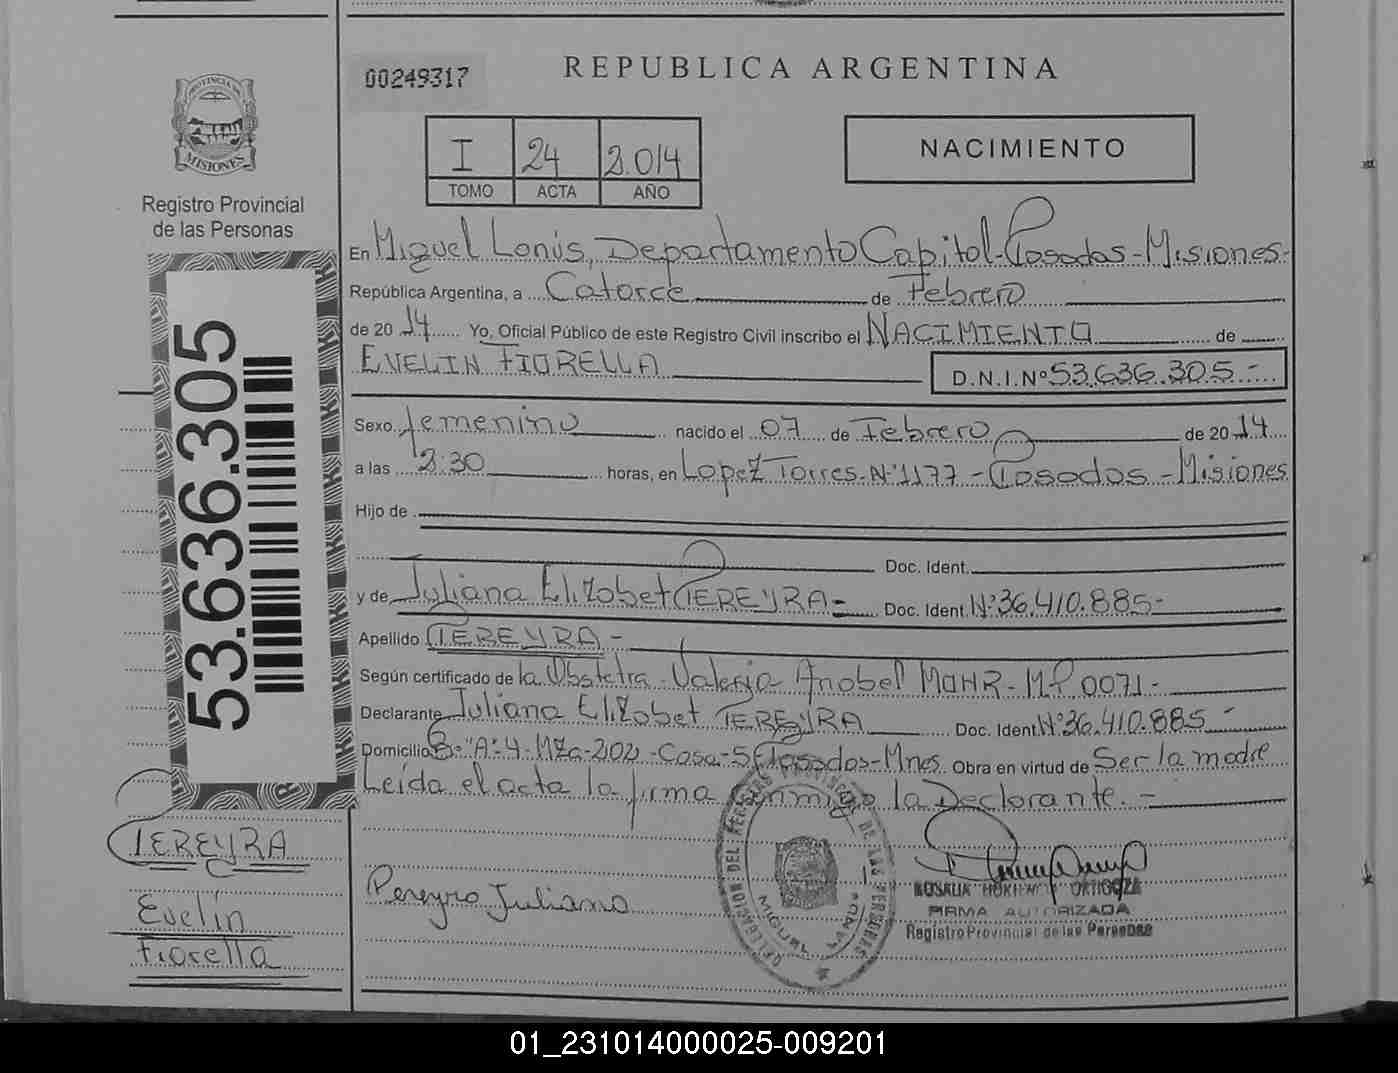 00249317
REPUBLICA ARGENTINA
PROVINCIA DE
MISIONES
Registro Provincial
de las Personas
I 24 2.014
TOMO ACTA AÑO
NACIMIENTO
En Miguel Lanús, Departamento Capital-Posadas-Misiones-
República Argentina, a Catorce de Febrero
de 20 14 Yo, Oficial Público de este Registro Civil inscribo el NACIMIENTO de
EVELIN FIORELLA D.N.I.Nº 53.636.305-
Sexo femenino nacido el 07 de Febrero de 20 14
a las 2:30 horas, en Lopez Torres-Nº1177-Posadas-Misiones
Hijo de
Doc. Ident.
y de Juliana Elizabet PEREYRA= Doc. Ident. Nº36.410.885-
Apellido PEREYRA-
Según certificado de la Obstetra-Valeria Anabel MOHR-MP 0071-
Declarante Juliana Elizabet PEREYRA Doc. Ident. Nº36.410.885-
Domicilio B:"A"-4-MZa-202-Casa-5-Posadas-Mnes. Obra en virtud de Ser la madre
Leída el acta la firma conmigo la Declarante.-
53.636.305
PEREYRA
Evelin
Fiorella
Pereyra Juliana
DELEGACION DEL REGISTRO PROVINCIAL DE LAS PERSONAS
MIGUEL LANUS
ROSALIA ORTIGOZA
FIRMA AUTORIZADA
Registro Provincial de las Personas
01_231014000025-009201